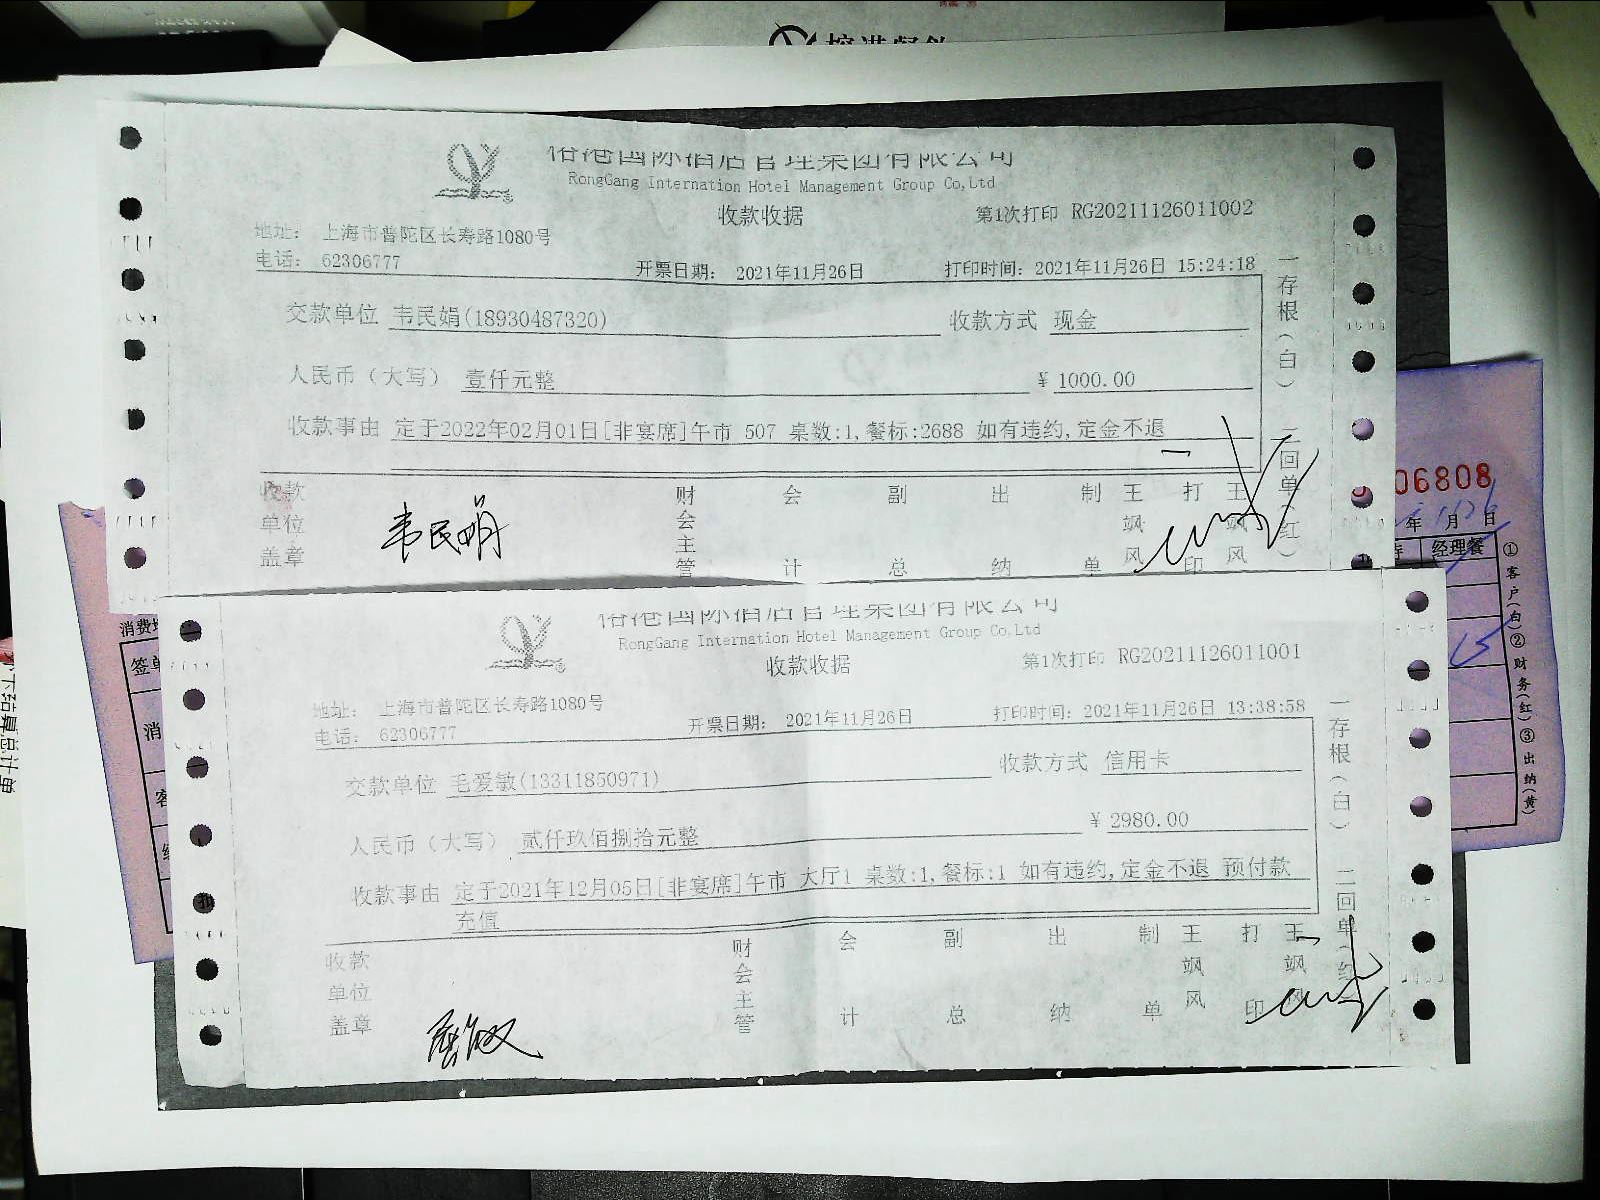 国际酒店管理集团有限公司
RongGang Internation Hotel Management Group Co,Ltd
收款收据
第1次打印 RG20211126011002
地址: 上海市普陀区长寿路1080号
电话: 62306777
开票日期: 2021年11月26日
打印时间: 2021年11月26日 15:24:18
交款单位 韦民娟(18930487320)
收款方式 现金
人民币（大写） 壹仟元整
¥ 1000.00
收款事由 定于2022年02月01日[非宴席]午市 507 桌数:1,餐标:2688 如有违约,定金不退
收款单位盖章
韦民娟
财会主管
会计
副总
出纳
制单
王飒风
打印
王飒风
一存根（白）
二回单（红）
国际酒店管理集团有限公司
RongGang Internation Hotel Management Group Co,Ltd
收款收据
第1次打印 RG20211126011001
地址: 上海市普陀区长寿路1080号
电话: 62306777
开票日期: 2021年11月26日
打印时间: 2021年11月26日 13:38:58
交款单位 毛爱敏(13311850971)
收款方式 信用卡
人民币（大写） 贰仟玖佰捌拾元整
¥ 2980.00
收款事由 定于2021年12月05日[非宴席]午市 大厅1 桌数:1,餐标:1 如有违约,定金不退 预付款
充值
收款单位盖章
财会主管
会计
副总
出纳
制单
王飒风
打印
王飒风
一存根（白）
二回单（红
06808
年 月 日
经理餐
①客户(白)②财务(红)③出纳(黄)
消费
签单
消
客